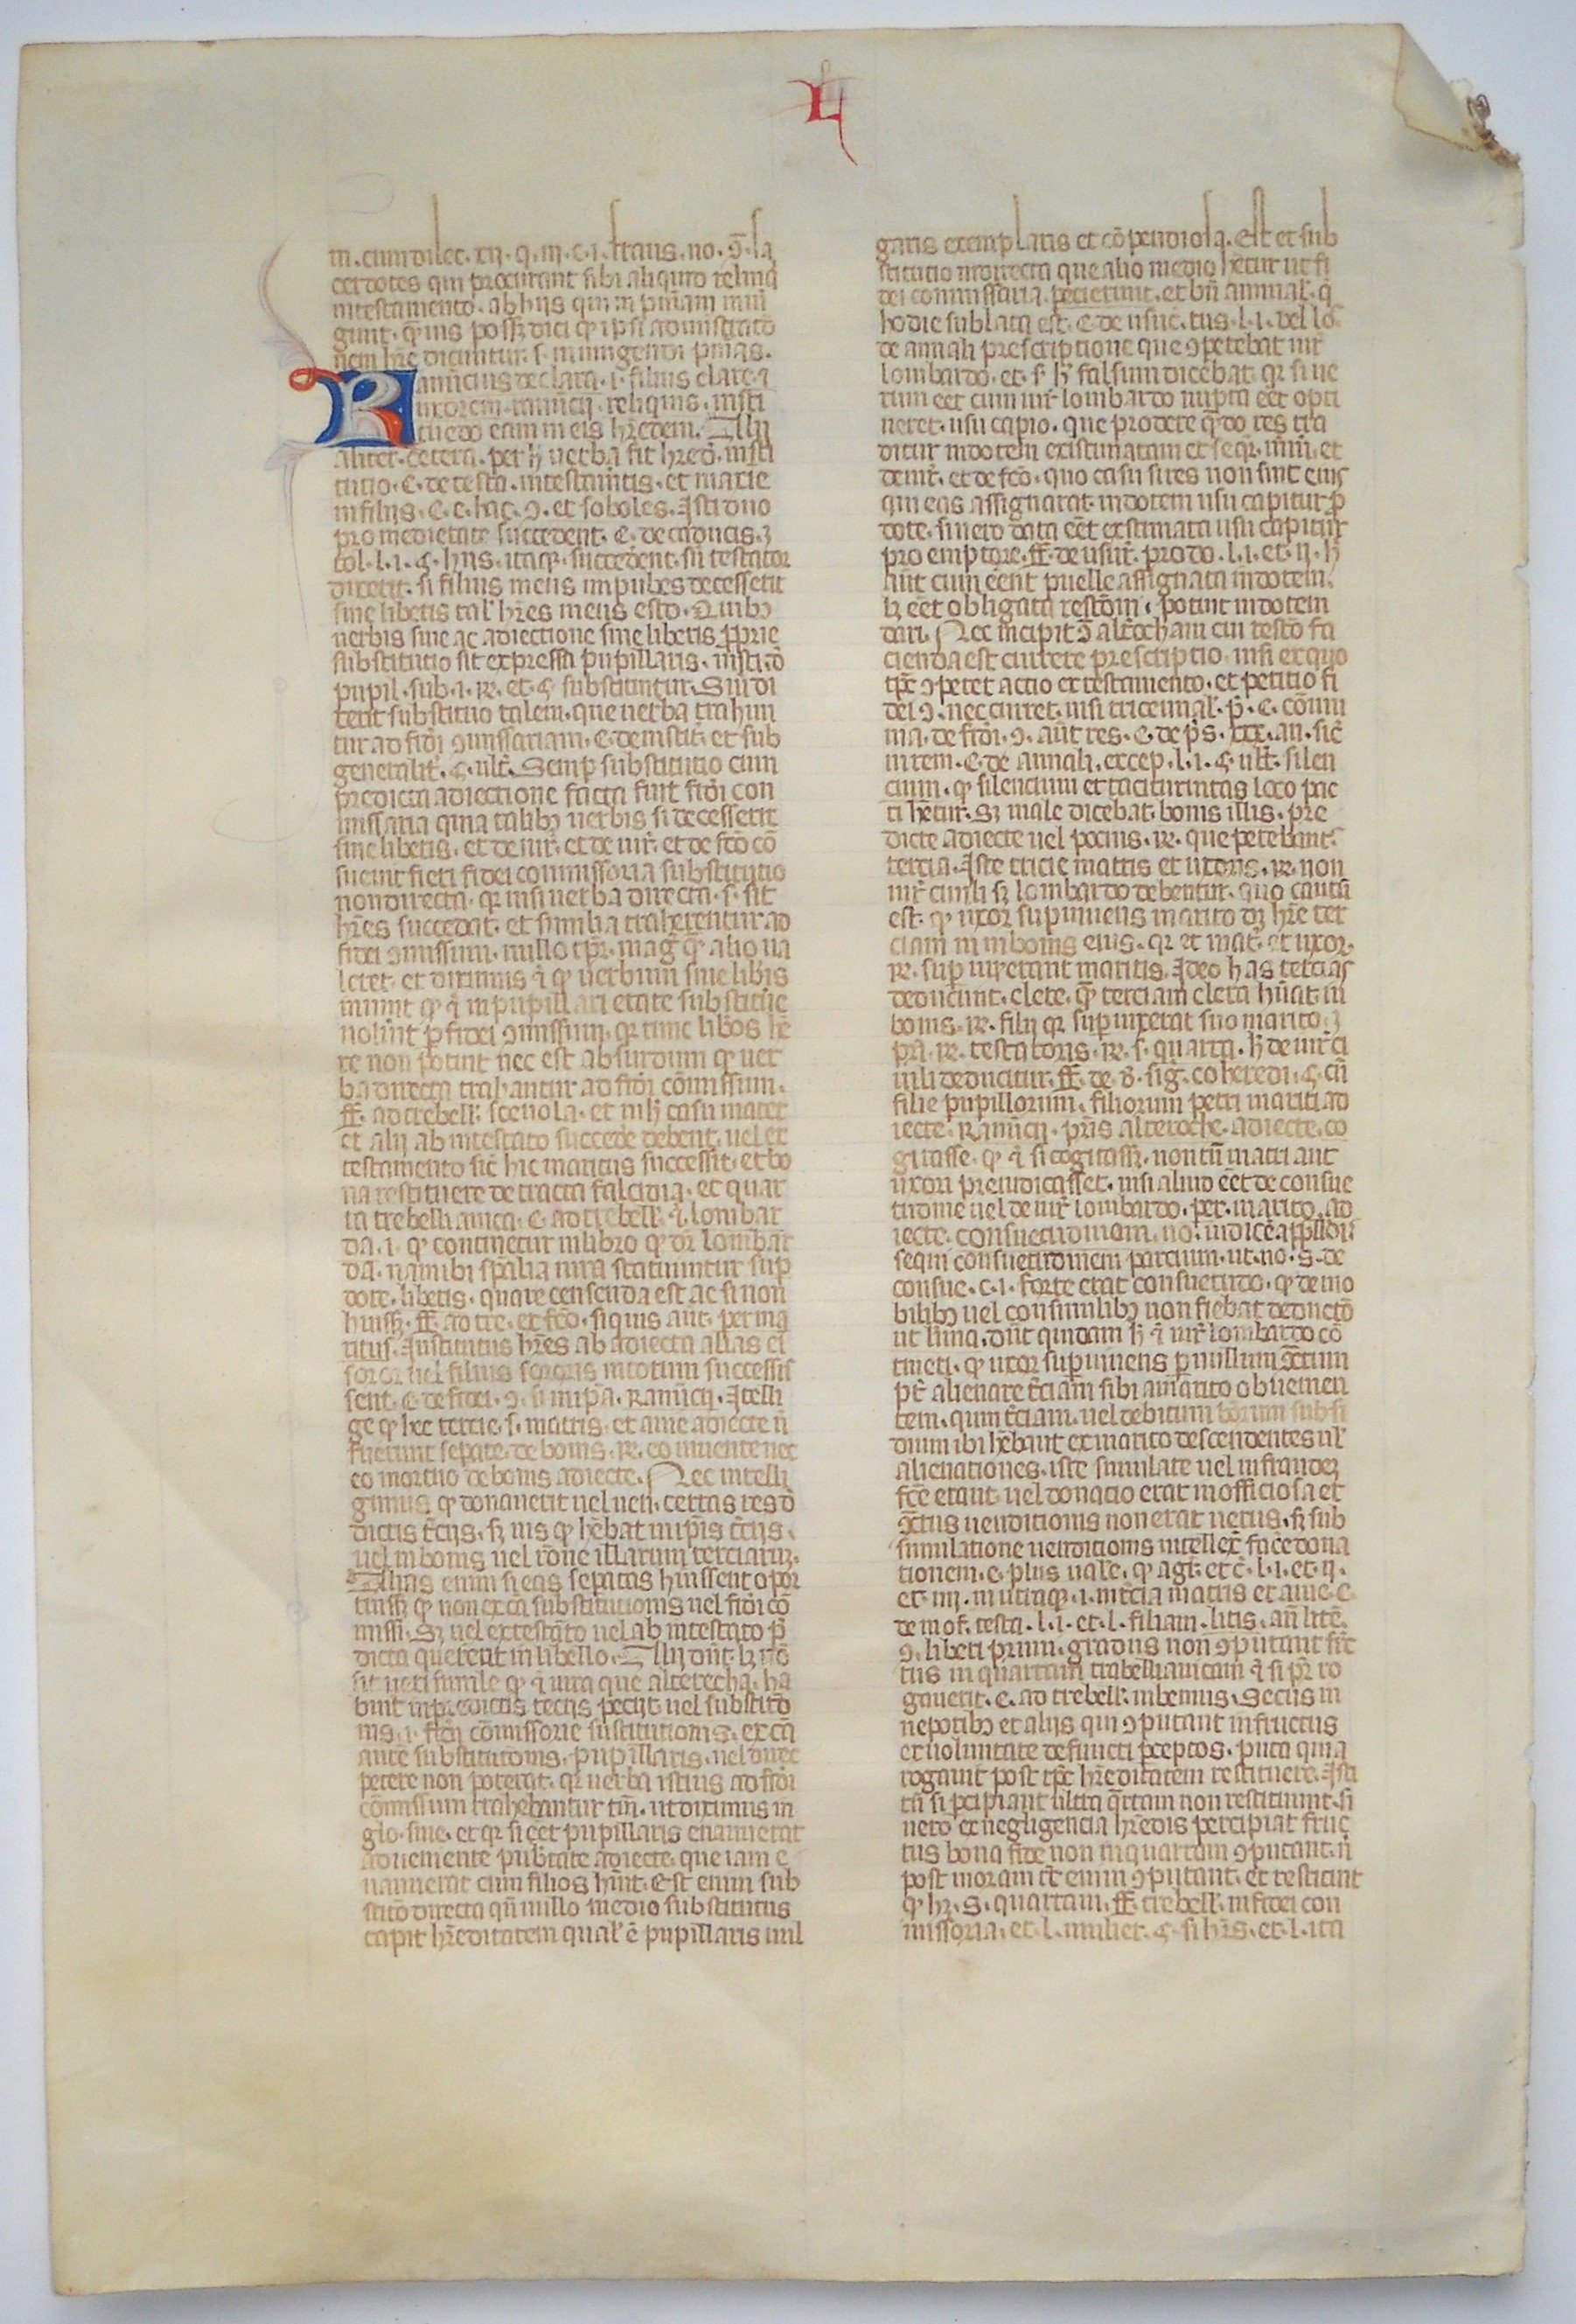 L
m. cum dilec. xij. q. iij. c. i. trans. no. 9. sa
cerdotes qui procurant sibi aliquid relinq
in testamento. ab hijs qui in
gunt.
nem hr̄e dicuntur. s. iniungendi pnīas.
Ranucius declara. i. filius clare. i
uxorem ranucij. reliquis. insti
tuedo eam in eis hr̄edem. Alij
aliter. cetera. per h uerba fit hred. insti
tutio. C. de testa. et marie
in filijs. C. e. hac. 9. et soboles. Isti duo
pro medietate succedent. C. de caducis.
tol. l. i. hijs. itaq. succedent. testator
dixerit. si filius meus impubes decesserit
sine liberis tal hr̄es meus esto. Quibꝫ
uerbis sine ac adiectione sine liberis pprie
substitutio fit expressa pupillaris. insti. d
pupil. sub. i. r. et. substituitur. Sin di
xerit substituo talem. que uerba trahun
tur ad fidi 9missariam. C. de instit. et sub
generalit. ult. Semp substitutio cum
predicta adiectione facta fuit fidi con
missaria quia talibꝫ uerbis si decesserit
sine liberis. et de iur. et de fcō cō
sueuit fieri fidei commissoria substitutio
non directa. qr nisi uerba directa. s. sit
hr̄es succedat. et similia traherentur ad
fidei 9missum. nullo tpr. mag q alio ua
leret. et diximus q uerbum sine libis
innuit q in pupillari etate substitue
noluit p fidei 9missum. qr tunc libos hē
re non potuit nec est absurdum q uer
ba directa trahantur ad fidi cōmissum.
ff. ad trebell. sceuola. et casu mater
et alij ab intestato succede debent. uel ex
testamento sic hic maritus successit. et bo
na restituere detracta falcidia. et quar
ta trebellianica. C. ad trebell. lombar
da. i. q continetur in libro q dr̄ lombar
da. nam ibi spālia iura statuuntur sup
dote. liberis. quare censenda est ac si non
ff. ad tre. et fcō. siquis aut. per ma
ritus. Institutus hr̄es ab adiecta alias ei
soror uel filius sororis in totum successis
sent. C. de fidei. 9. ranucij. Itelli
ge q hec tercie. s. matris. et auie adiecte n
fuerunt sepate. de bonis. r. eo uiuente nec
eo mortuo de bonis adiecte. Nec intelli
gimus q donauerit uel certas res d
dictis tcijs. sꝫ ius q hēbat in ipis tcijs.
uel in bonis uel rōne illarum terciarum.
Alias enim si eas sepatas
q non ex ca substitutionis uel fidi cō
missi. Sꝫ uel ex testato uel ab intestato p
dicta quererent in libello. Alij dnt. lꝫ
sit ueri simile q iura que alterocha. ha
buit in predictis tecijs petijt uel substitō
nis. i. fidi cōmissorie sustitutionis. ex ca
aute substitutionis. pupillaris. uel direc
petere non poterat. qr uerba istius ad fidi
cōmissum trahebantur tm. ut diximus in
glo. sine. et qr si eet pupillaris euanuerat
adueniente pubtate adiecte. que iam e
uanuerat cum filios hmt. Est enim sub
stitō directa qn nullo medio substitutus
capit hr̄editatem qual ē pupillaris uul
garis exemplaris et cōpendiosa. Est et sub
stitutio indirecta que alio medio hētur ut fi
dei commissaria. pecierunt. et bn annual. q
hodie sublata est. C. de usuc. tus. l. i. uel lō
de annali prescriptione que 9petebat iur
lombardo. et. s. h falsum dicebat qr si ue
rum eet cum iur lombardo nupta eet opti
neret. usucapio. que procere qdo res tra
ditur in dotem existimatam et seqr. et
de iur. et de fcō. quo casu si res non sint eius
qui eas assignarat. in dotem usu capitur p
dote. si uero data eet estimata usu capitur
pro emptore. ff. de usur. pro do. l. i. et. ij. h
aut cum eent puelle assignata in dotem.
lꝫ eet obligata potuit in dotem
dari. Nec incipit alterocham cui
cienda est currere prescriptio. nisi ex quo
tpe 9petet actio ex testamento. et petitio fi
dei 9. nec curret. nisi tricennal. p. C. cōmu
nia. de fidi. 9. aut res. C. de ps. xxx. an. sic
in rem. C. de annali. excep. l. i. ult. silen
cium. q silencium et taciturnitas loco pac
ti hētur. Sꝫ male dicebat. bonis illis. pre
dicte adiecte uel pocius. r. que petebant.
tercia. Iste tricie matris et uxoris. r. non
iur ciuili sꝫ lombardo debentur. quo cautū
est. q uxor supuiuens marito dꝫ hr̄e ter
ciam in in bonis eius. qr et mat. et uxor.
r. sup uixerant maritis. Ideo has tercias
deducunt. clere. q terciam clera hūat in
bonis. r. filij qr supuixerat suo marito.
pa. r. testatoris. r. s. quarta. h de iur ci
uili deducitur. ff. de sig. coheredi. cū
filie pupillorum. filiorum petri mariti ad
iecte. Ranucij. pris alteroche. adiecte. co
gitasse. q si cogitassꝫ. non tn matri aut
uxori preiudicasset. nisi aliud eēt de consue
tudine uel de iur lombardo. per marito. ad
iecte. consuetudinam. no. iudicē
sequi consuetudinem parcium. ut. no. s. de
consue. c. i. forte erat consuetudo. q de mo
bilibꝫ uel consimilibꝫ non fiebat deductō
ut dnt quidam h iur lombardo cō
tineri. q uxor supuiuens p nullum
pt alienare tciam sibi a marito obuenien
tem. qum tciam. uel debitum subsi
dium ibi hēbant ex marito descendentes ul
alienationes. iste simulate uel in fraudez
fcē erant. uel donatio erat inofficiosa et
9ctus uenditionis non erat uerus. sꝫ sub
simulatione uenditionis intellex facē dona
tionem. C. plus uale. q agt. et c. l. i. et. ij.
et. iij. in utraq. i. in tcia matris et auie. C.
de inof. testa. l. i. et. l. filiam. litis. an lite.
9. liberi primi. gradus non 9putant fruc
tus in quartam trabellianicam si pr̄ ro
gauerit. C. ad trebell. iubemus. Secus in
nepotibꝫ et alijs qui 9putant in fructus
ex uoluntate defuncti pceptos. puta quia
rogauit post tpe hr̄editatem restituere. Isti
tn si pcipiant ultra qrtam non restituunt. si
uero ex negligencia hr̄edis percipiat fruc
tus bona fide non in quartam 9putant. n
post moram tc enim 9putant. et restituunt
q hꝫ. s. quartam. ff. trebell. in fidei con
missoria. et. l. mulier. si hr̄s. et. l. ita